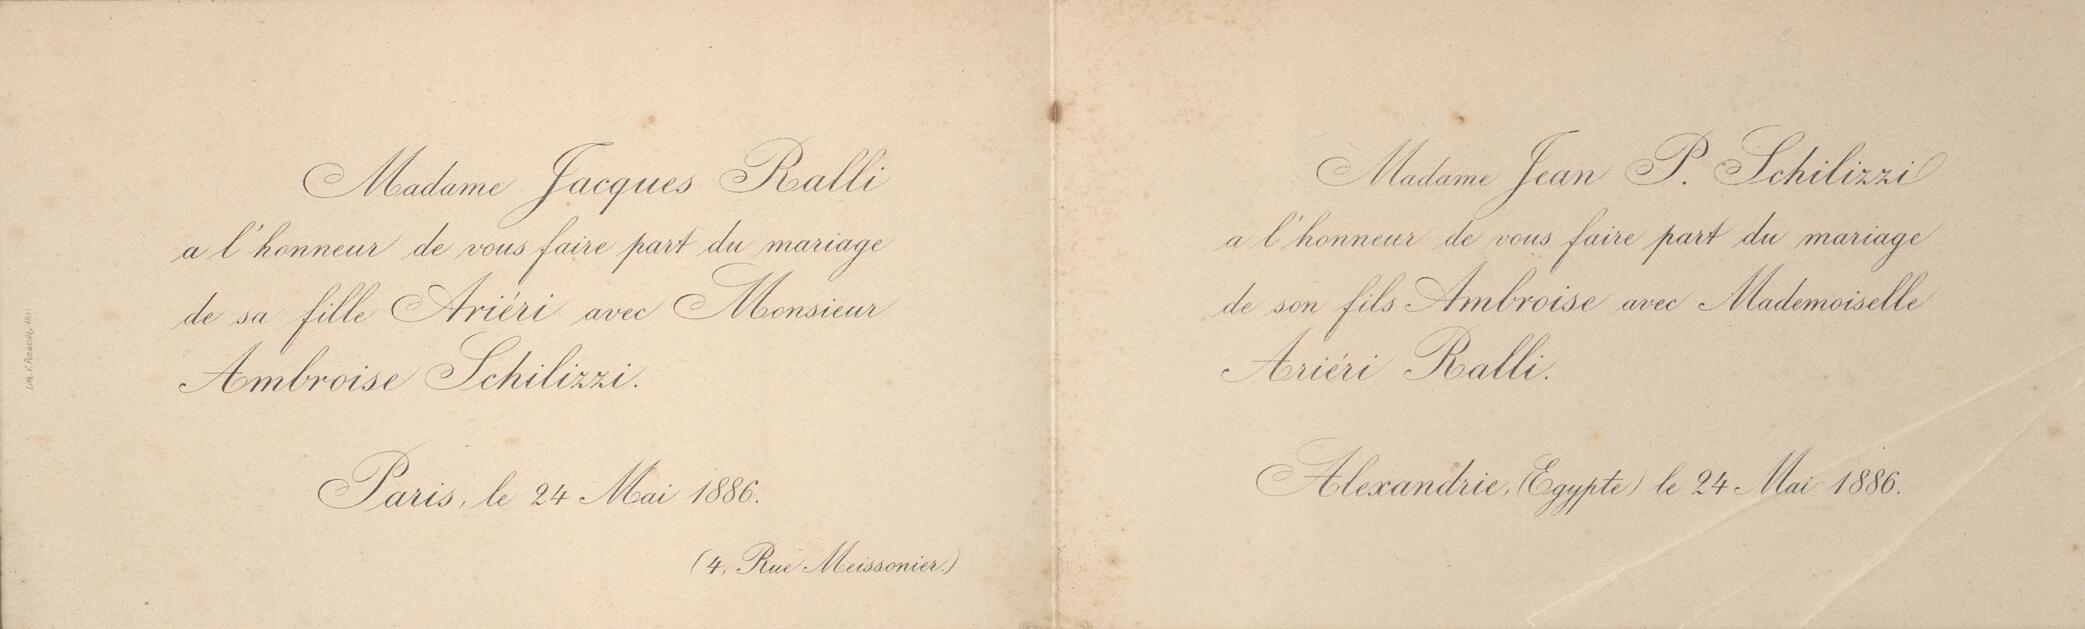 Madame Jacques Ralli
a l'honneur de vous faire part du mariage
de sa fille Ariéri avec Monsieur
Ambroise Schilizzi.
Paris, le 24 Mai 1886.
(4, Rue Meissonier.)
Madame Jean P. Schilizzi
a l'honneur de vous faire part du mariage
de son fils Ambroise avec Mademoiselle
Ariéri Ralli.
Alexandrie, (Egypte) le 24 Mai 1886.
Lith.